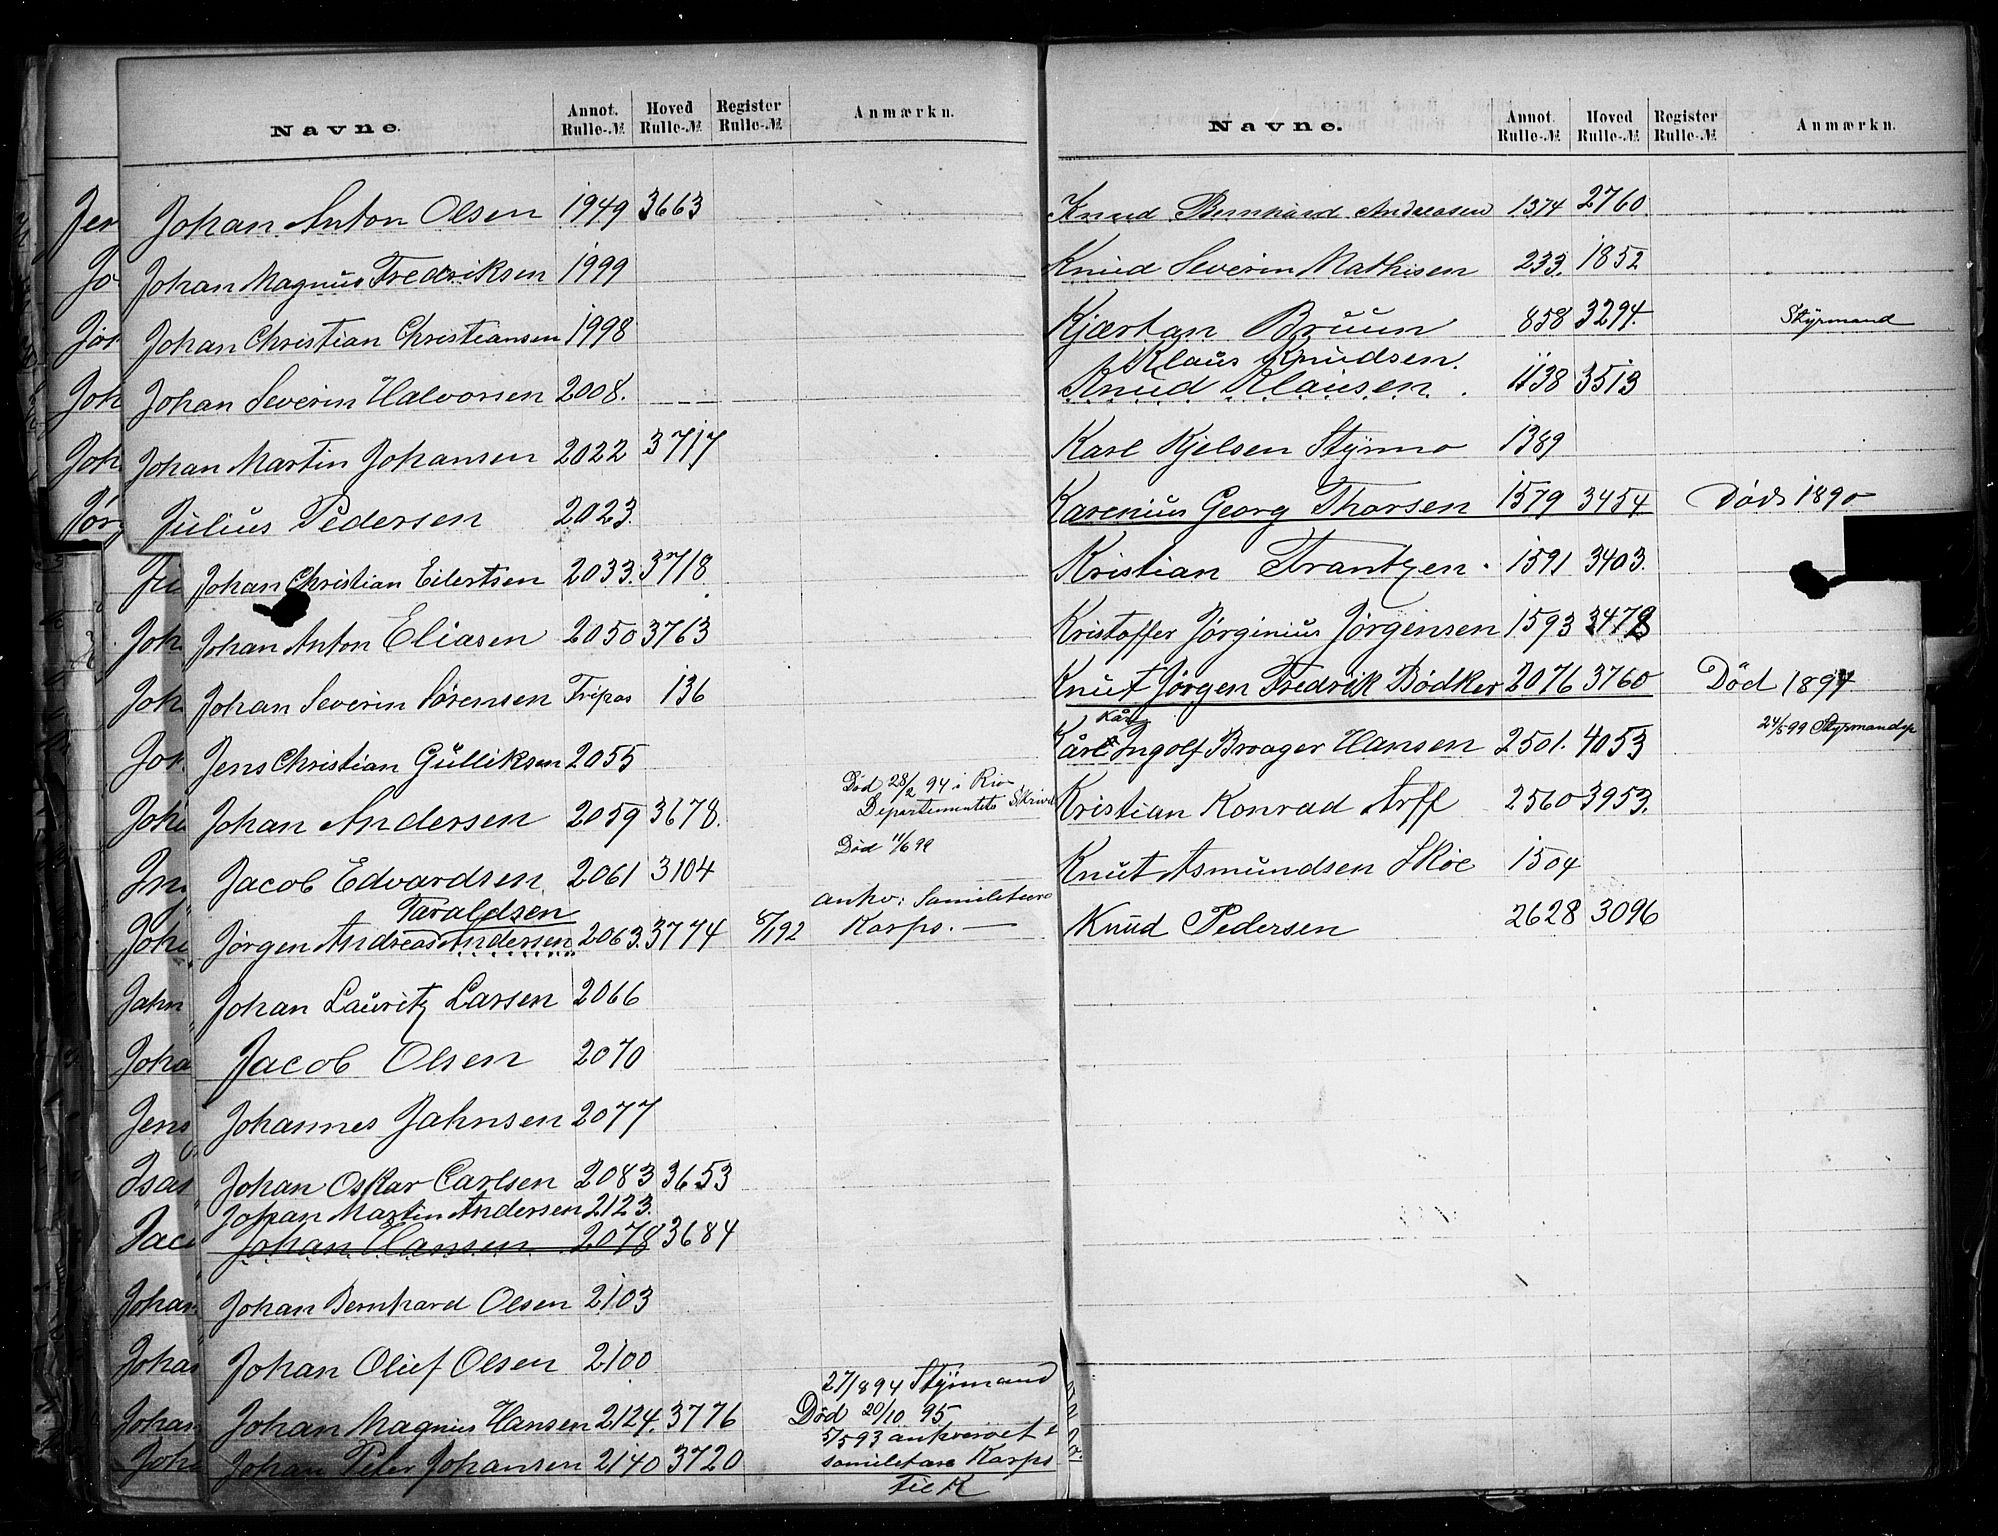 Navne. Annot. Rulle-№ Hoved Rulle-№ Register Rulle-№ Anmærkn.
Johan Anton Olsen 1949 3663
Johan Magnus Fredriksen 1999
Johan Christian Christiansen 1998
Johan Severin Halvorsen 2008.
Johan Martin Johansen 2022 3717
Julius Pedersen 2023.
Johan Christian Eilertsen 2033. 3718
Johan Anton Eliasen 2050 3763
Johan Severin Sörensen Fripas 136
Jens Christian Gulliksen 2055
Johan Andersen 2059 3678. Död 28/2 94 i Rio
Departementets Skriv
Jacob Edvardsen 2061 3104 Död 11/6 99
Taraldsen
Jørgen Andreas Andersen 2063. 3774 8/192 ankv: Samilitære
Korps. —
Johan Lauritz Larsen 2066
Jacob Olsen 2070
Johannes Jahnsen 2077
Johan Oskar Carlsen 2083 3653
Johan Martin Andersen 2123.
Johan Hansen 2078 3684
Johan Bernhard Olsen 2103
Johan Olief Olsen 2100
27/8 94 Styrmand
Johan Magnus Hansen 2124. 3776 Död 20/10 95
5/5 93
Johan Peter Johansen 2140 3720 samilitære Korps
Navne. Annot. Rulle-№ Hoved Rulle-№ Register Rulle-№ Anmærkn.
Knud Bernhard Andreasen 1374 2760
Knud Severin Mathisen 233. 1852
Kjærtan Bruun 858 3294. Styrmand
Klaus Knudsen.
Knud Klausen. 1138 3513
Karl Kjelsen Styrmo 1389
Karenius Georg Thorsen 1579 3454 Död 1890
Kristian Frantzen. 1591 3403.
Kristoffer Jörginius Jörgensen 1593 3478
Knut Jörgen Fredrik Bödker 2076 3760 Död 1897
Kåre Ingolf Braager Hansen 2501. 4053 24/5 99 Styrmandsp
Kristian Konrad Arff 2560 3953.
Knut Asmundsen Skoe 1504
Knud Pedersen 2628 3096